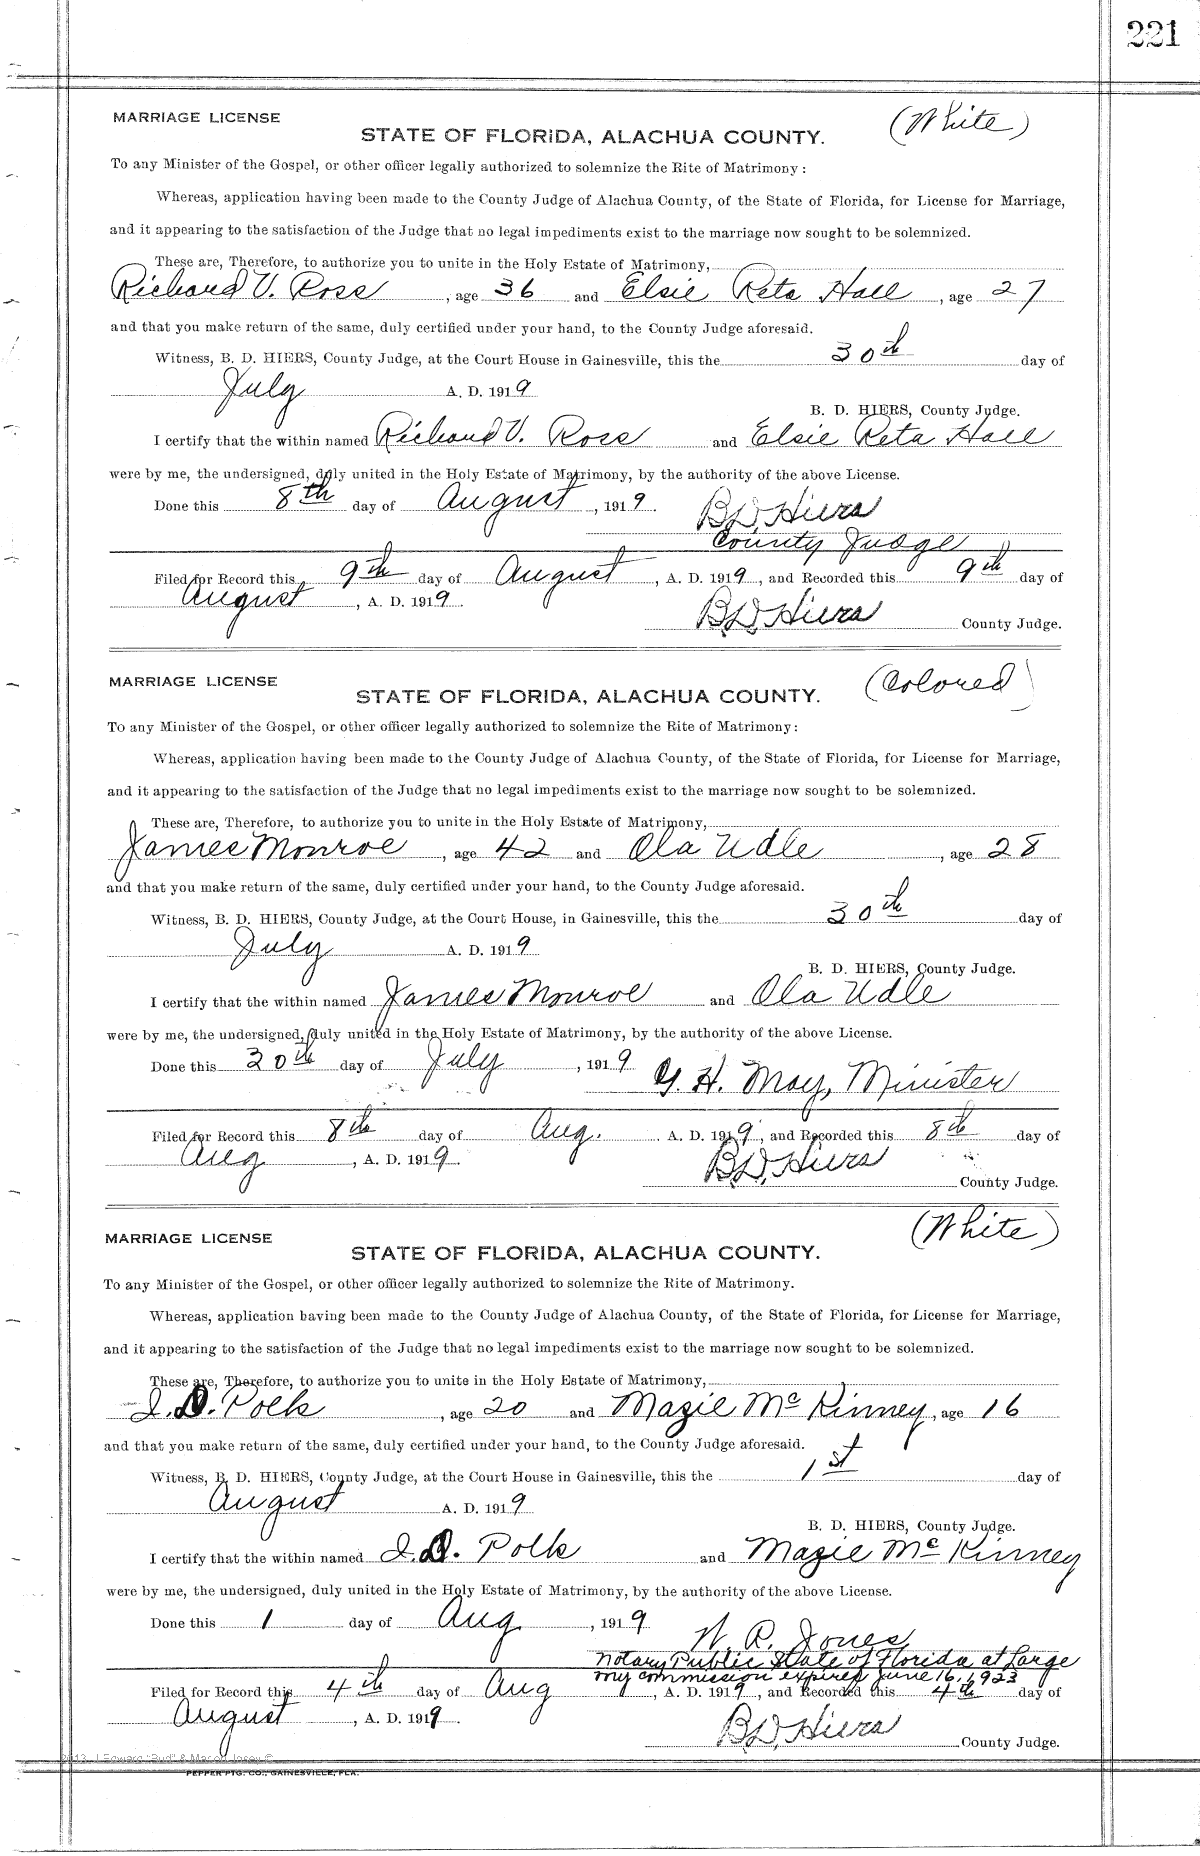 221
MARRIAGE LICENSE
(White)
STATE OF FLORIDA, ALACHUA COUNTY.
To any Minister of the Gospel, or other officer legally authorized to solemnize the Rite of Matrimony:
Whereas, application having been made to the County Judge of Alachua County, of the State of Florida, for License for Marriage,
and it appearing to the satisfaction of the Judge that no legal impediments exist to the marriage now sought to be solemnized.
These are, Therefore, to authorize you to unite in the Holy Estate of Matrimony,
Richard V. Ross, age 36 and Elsie Reta Hall, age 27
and that you make return of the same, duly certified under your hand, to the County Judge aforesaid.
Witness, B. D. HIERS, County Judge, at the Court House in Gainesville, this the 30th day of
July A. D. 1919
B. D. HIERS, County Judge.
I certify that the within named Richard V. Ross and Elsie Reta Hall
were by me, the undersigned, duly united in the Holy Estate of Matrimony, by the authority of the above License.
Done this 8th day of August, 1919. B.D. Hiers
County Judge
Filed for Record this 9th day of August, A. D. 1919, and Recorded this 9th day of
August, A. D. 1919.
B.D. Hiers County Judge.
MARRIAGE LICENSE
(Colored)
STATE OF FLORIDA, ALACHUA COUNTY.
To any Minister of the Gospel, or other officer legally authorized to solemnize the Rite of Matrimony:
Whereas, application having been made to the County Judge of Alachua County, of the State of Florida, for License for Marriage,
and it appearing to the satisfaction of the Judge that no legal impediments exist to the marriage now sought to be solemnized.
These are, Therefore, to authorize you to unite in the Holy Estate of Matrimony,
James Monroe, age 42 and Ola Udle, age 28
and that you make return of the same, duly certified under your hand, to the County Judge aforesaid.
Witness, B. D. HIERS, County Judge, at the Court House, in Gainesville, this the 30th day of
July A. D. 1919
B. D. HIERS, County Judge.
I certify that the within named James Monroe and Ola Udle
were by me, the undersigned, duly united in the Holy Estate of Matrimony, by the authority of the above License.
Done this 30th day of July, 1919 G. H. May, Minister
Filed for Record this 8th day of Aug. A. D. 1919, and Recorded this 8th day of
Aug, A. D. 1919.
B.D. Hiers County Judge.
MARRIAGE LICENSE
(White)
STATE OF FLORIDA, ALACHUA COUNTY.
To any Minister of the Gospel, or other officer legally authorized to solemnize the Rite of Matrimony.
Whereas, application having been made to the County Judge of Alachua County, of the State of Florida, for License for Marriage,
and it appearing to the satisfaction of the Judge that no legal impediments exist to the marriage now sought to be solemnized.
These are, Therefore, to authorize you to unite in the Holy Estate of Matrimony,
I. D. Polk, age 20 and Mazie McKinney, age 16
and that you make return of the same, duly certified under your hand, to the County Judge aforesaid.
Witness, B. D. HIERS, County Judge, at the Court House in Gainesville, this the 1st day of
August A. D. 1919
B. D. HIERS, County Judge.
I certify that the within named I. D. Polk and Mazie McKinney
were by me, the undersigned, duly united in the Holy Estate of Matrimony, by the authority of the above License.
Done this 1 day of Aug, 1919 W. R. Jones
Notary Public State of Florida at Large
my commission expires June 16, 1923
Filed for Record this 4th day of Aug, A. D. 1919, and Recorded this 4th day of
August, A. D. 1919.
B.D. Hiers County Judge.
J Edward "Bud" & Marion Josey ©
PEPPER PTG. CO., GAINESVILLE, FLA.